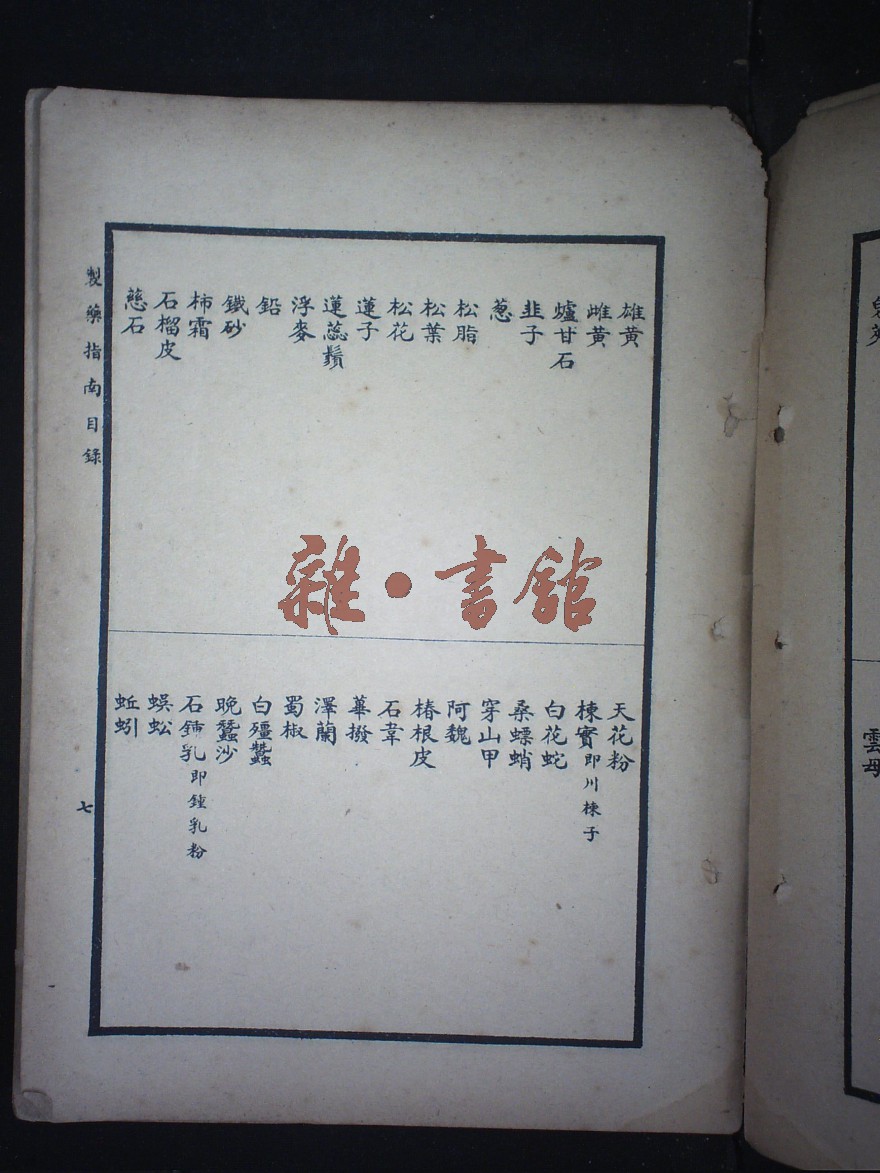 雄黃
雌黃
爐甘石
韭子
葱
松脂
松葉
松花
蓮子
蓮蕊鬚
浮麥
鉛
鐵砂
柿霜
石榴皮
慈石
天花粉
楝實即川楝子
白花蛇
桑螵蛸
穿山甲
阿魏
椿根皮
石韋
蓽撥
澤蘭
蜀椒
白殭蠶
晚蠶沙
石鍾乳即鍾乳粉
蜈蚣
蚯蚓
製藥指南目錄
七
雜・書館
雲母